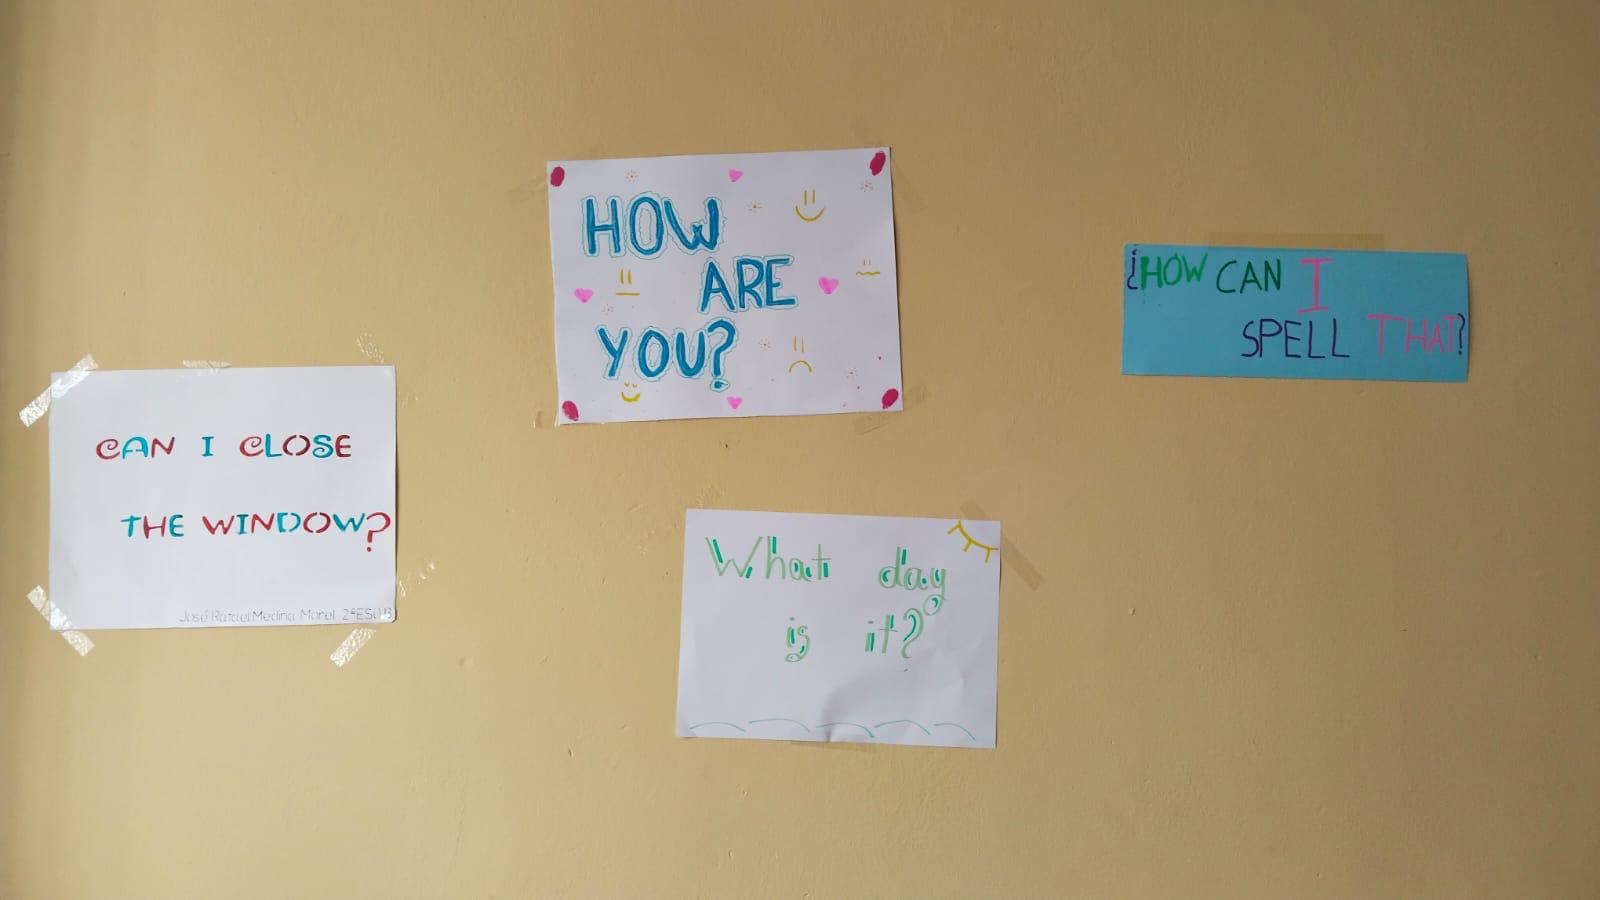 CAN I CLOSE
THE WINDOW?
José Rafael Medina
HOW
ARE
YOU?
What day
is it?
¿HOW CAN I
SPELL THAT?